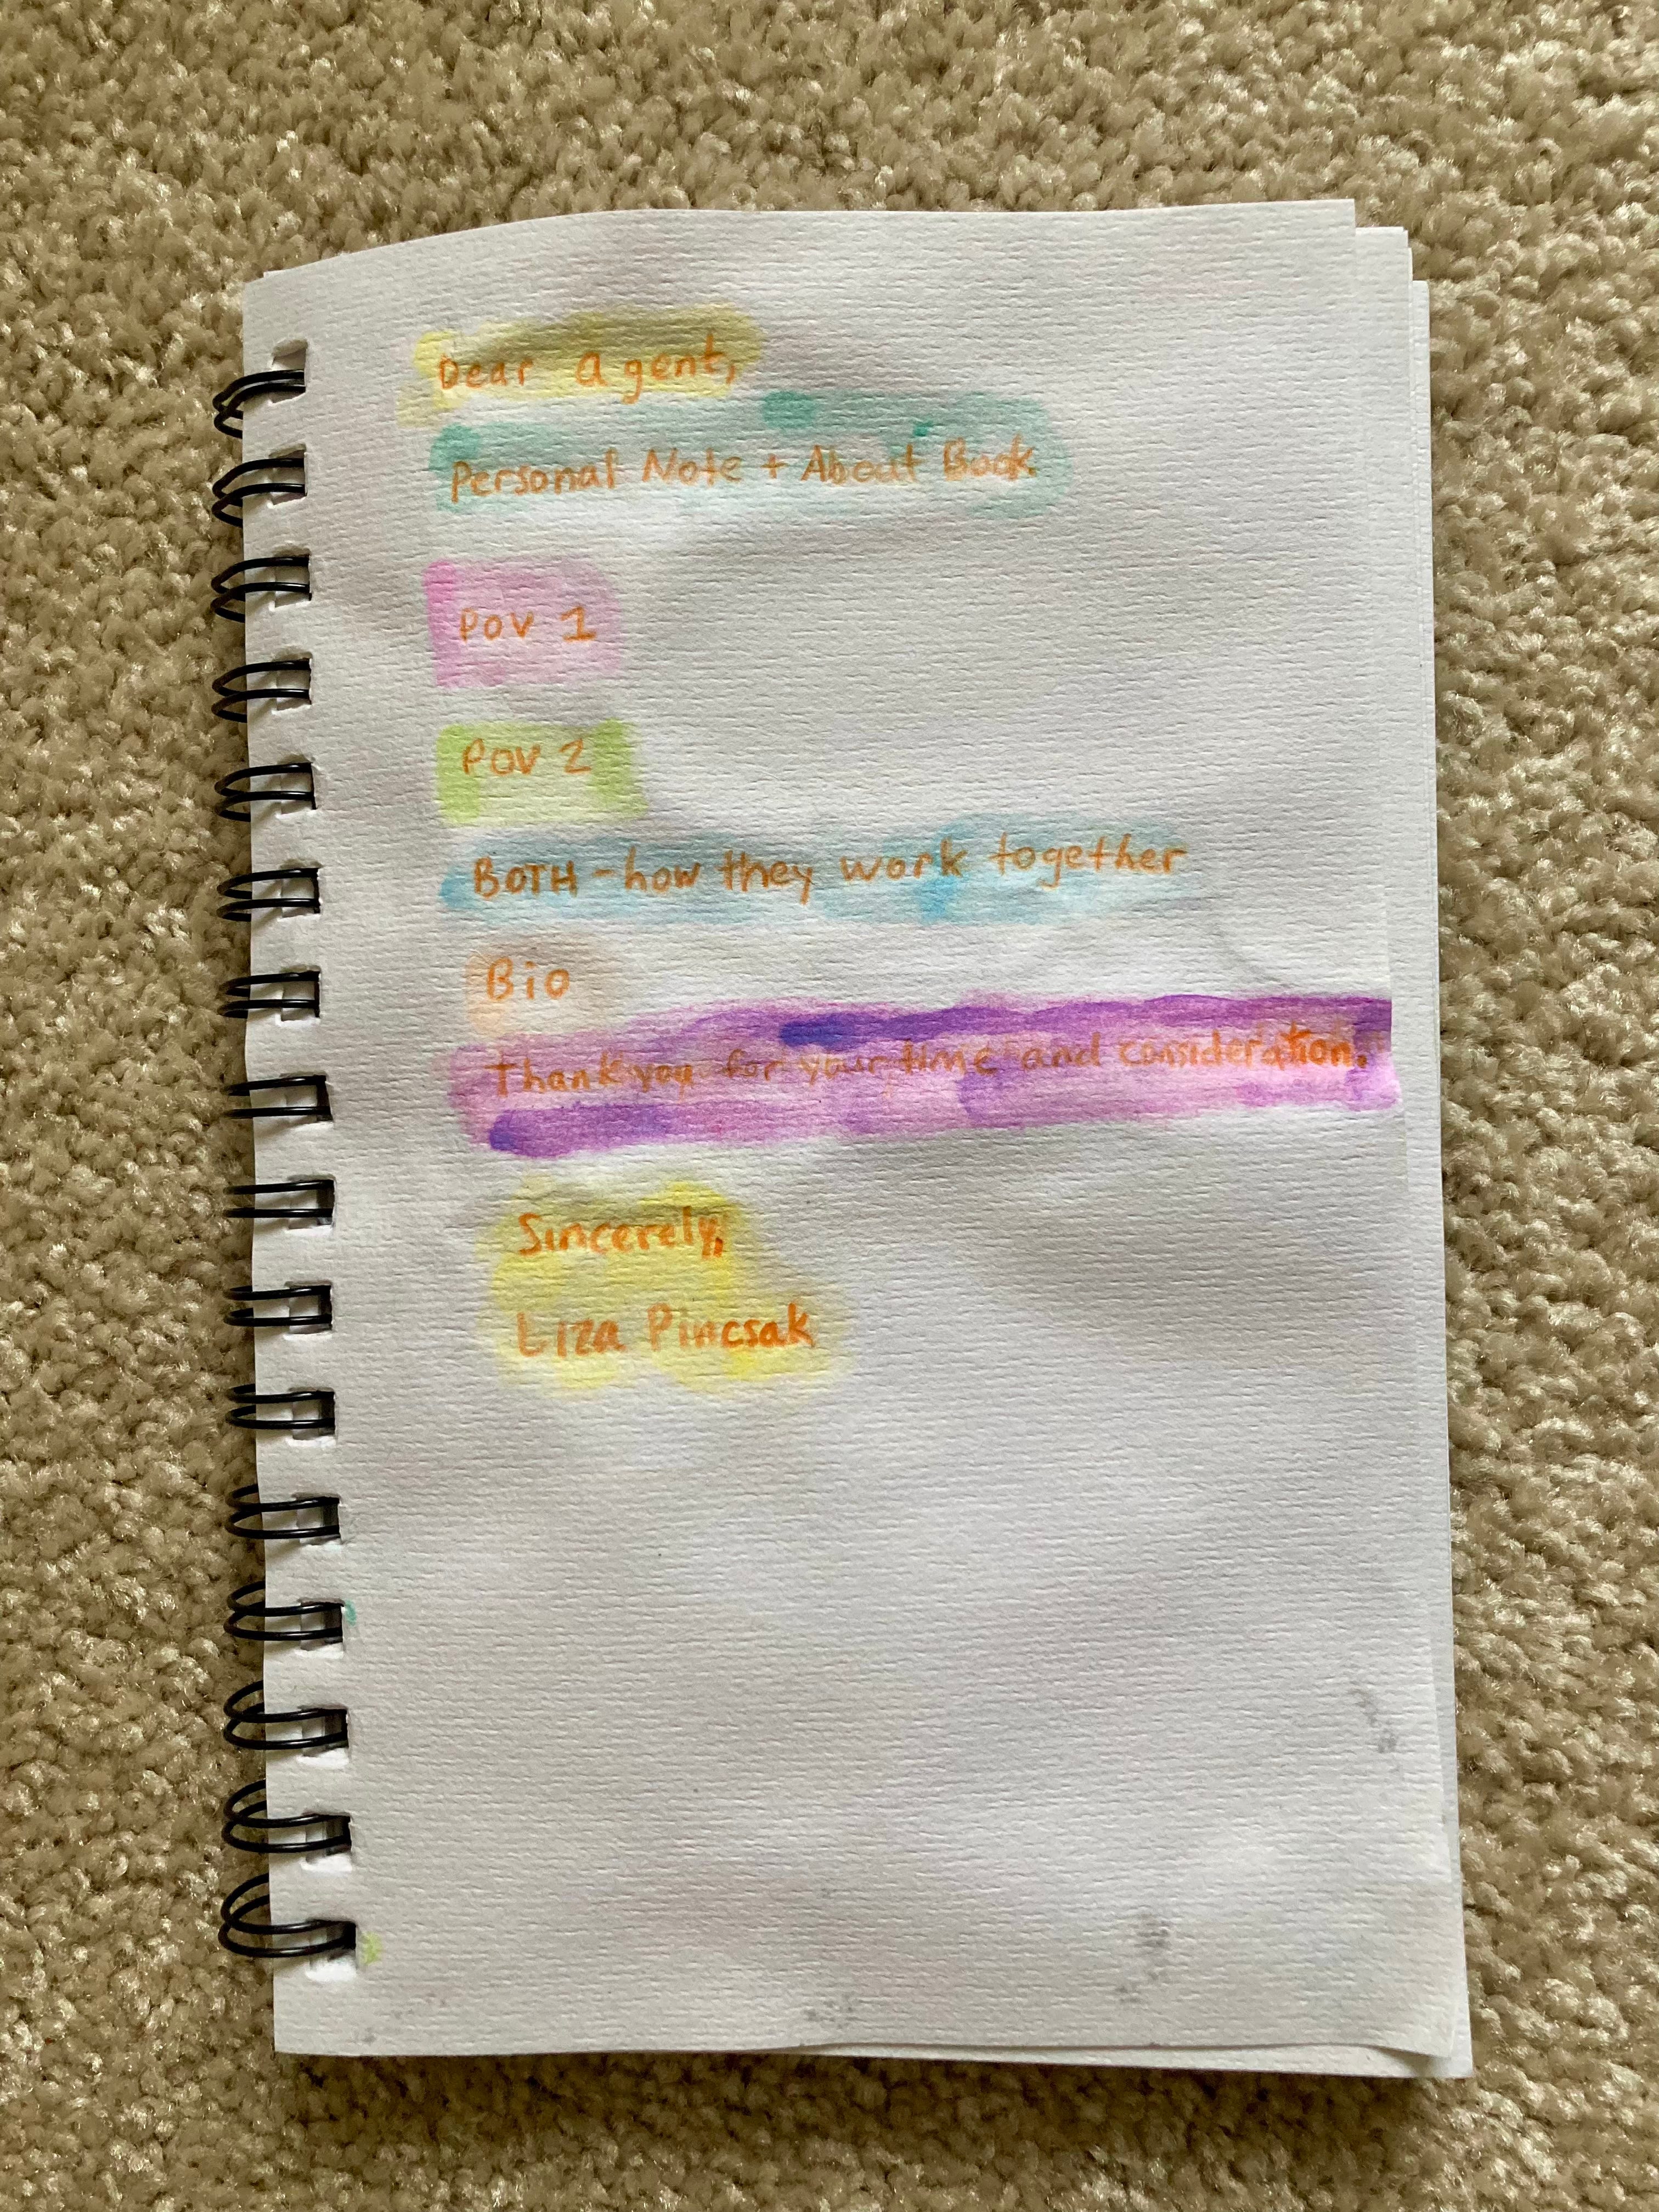 Dear Agent,
Personal Note + About Book
POV 1
POV 2
BOTH - how they work together
Bio
Thank you for your time and consideration.
Sincerely,
Liza Pincsak